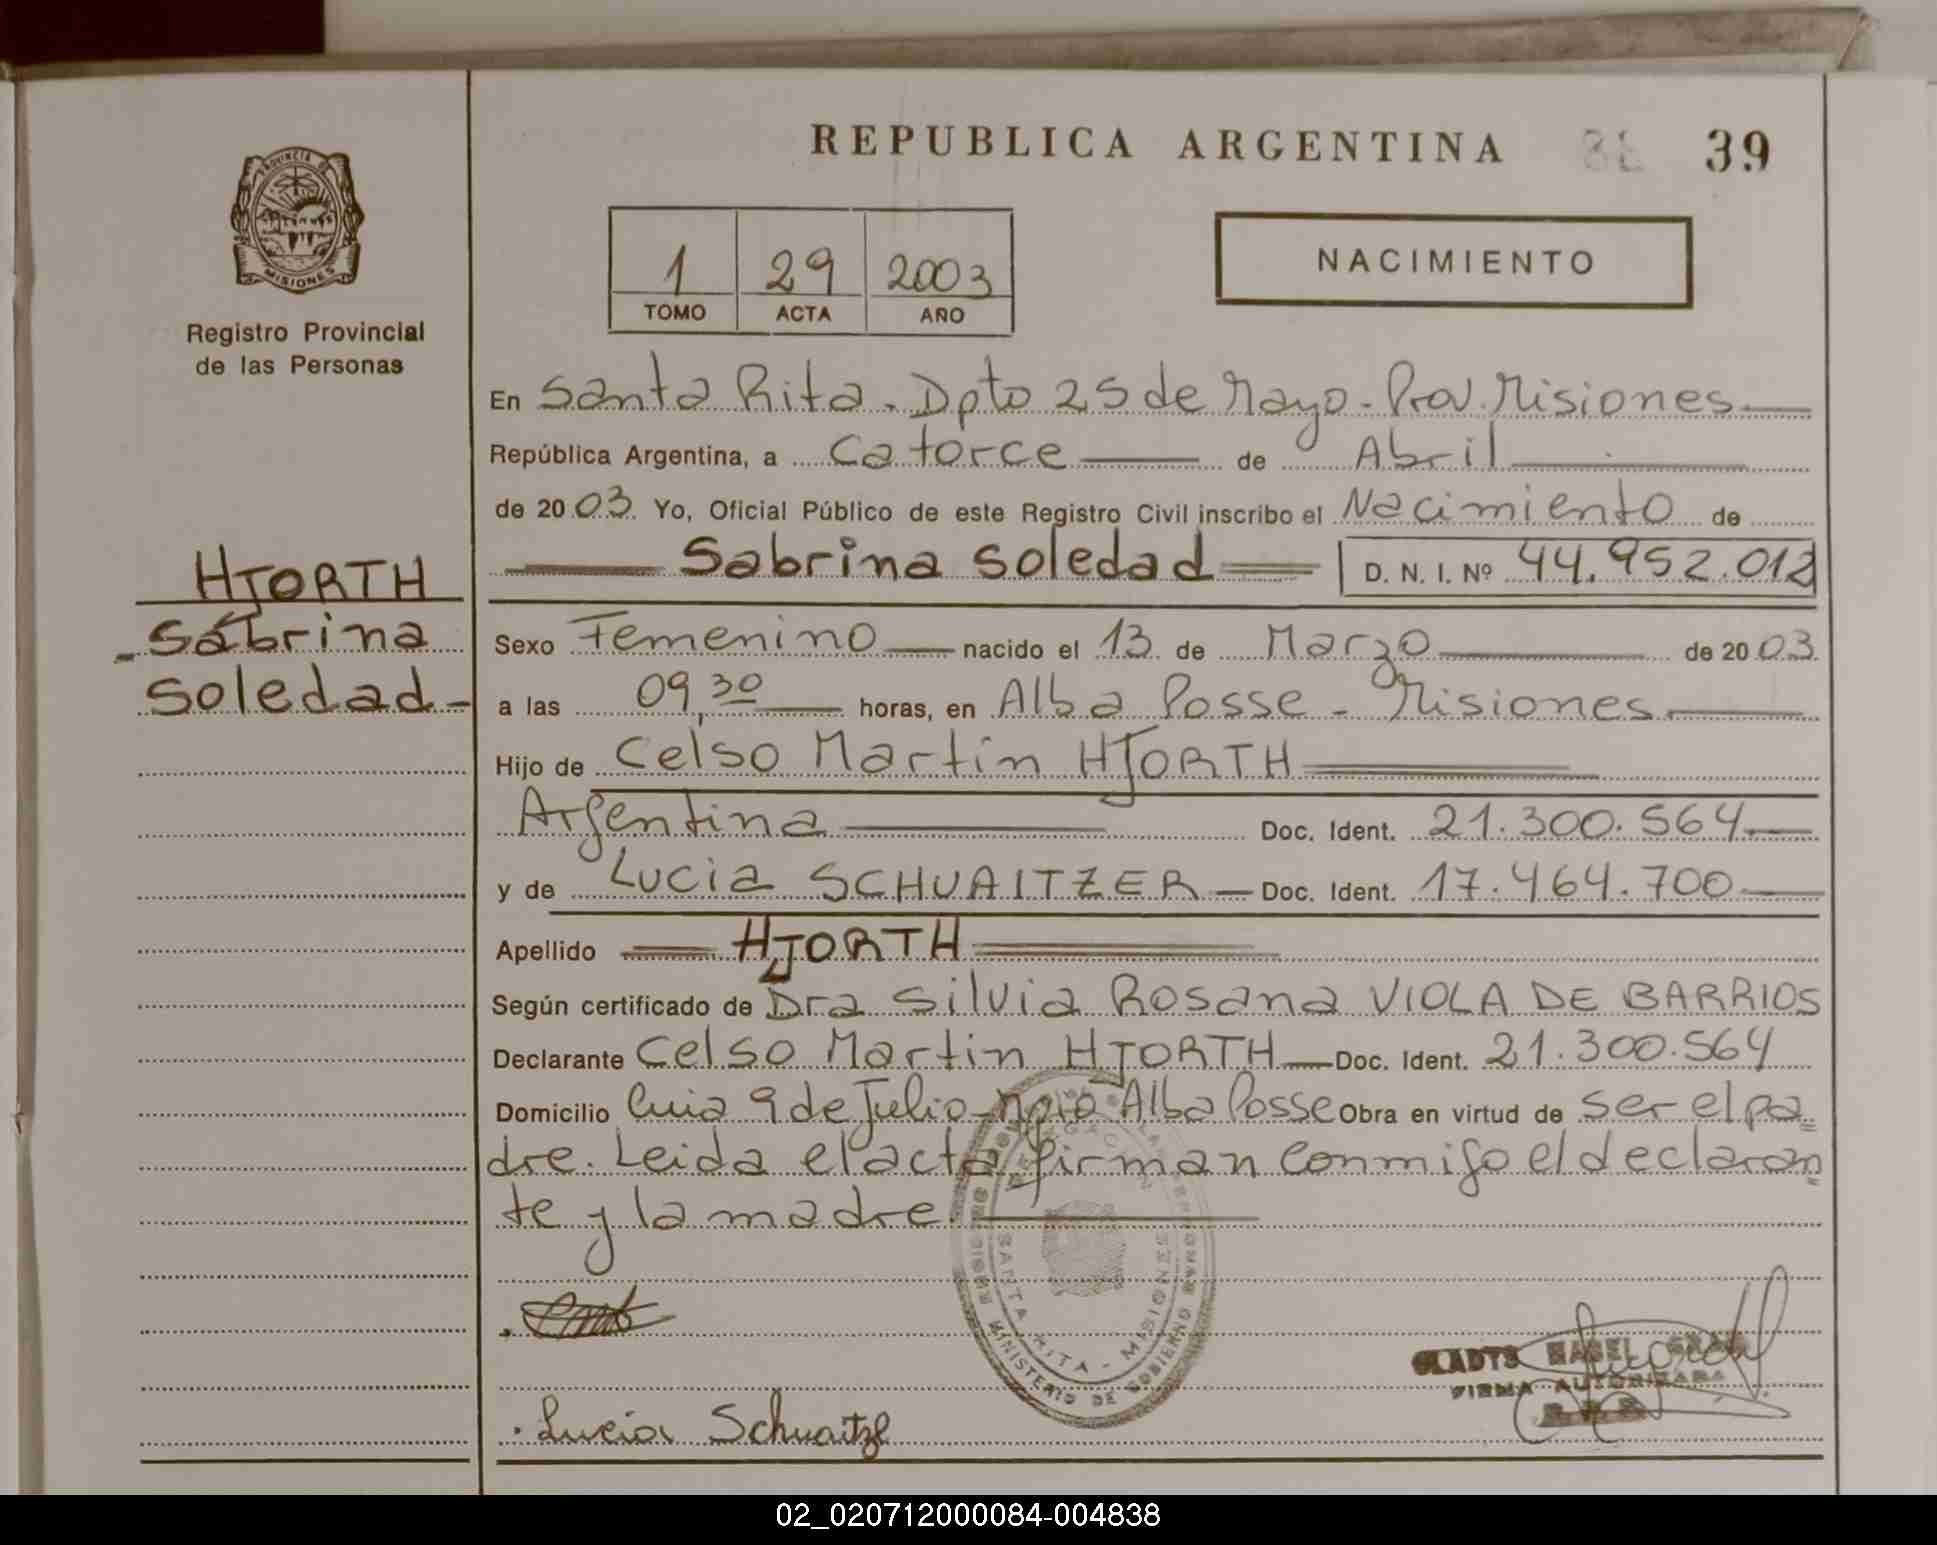 REPUBLICA ARGENTINA 39
PROVINCIA DE
MISIONES
Registro Provincial
de las Personas
1 29 2003
TOMO ACTA AÑO
NACIMIENTO
En Santa Rita. Dpto 25 de Mayo - Prov. Misiones
República Argentina, a Catorce de Abril
de 2003. Yo, Oficial Público de este Registro Civil inscribo el Nacimiento de
Sabrina Soledad D. N. I. Nº 44.952.012
HJORTH
Sabrina
Soledad -
Sexo Femenino nacido el 13 de Marzo de 2003
a las 09,30 horas, en Alba Posse - Misiones
Hijo de Celso Martin HJORTH
Argentina Doc. Ident. 21.300.564
y de Lucia SCHUAITZER Doc. Ident. 17.464.700
Apellido HJORTH
Según certificado de Dra Silvia Rosana VIOLA DE BARRIOS
Declarante Celso Martin HJORTH Doc. Ident. 21.300.564
Domicilio 9 de Julio Alba Posse Obra en virtud de ser el pa
dre. Leida el acta firman conmigo el declaran
te y la madre.
SANTA RITA - MISIONES
MINISTERIO DE GOBIERNO
GLADYS MABEL
FIRMA AUTORIZADA
Lucia Schuaitze
02_020712000084-004838